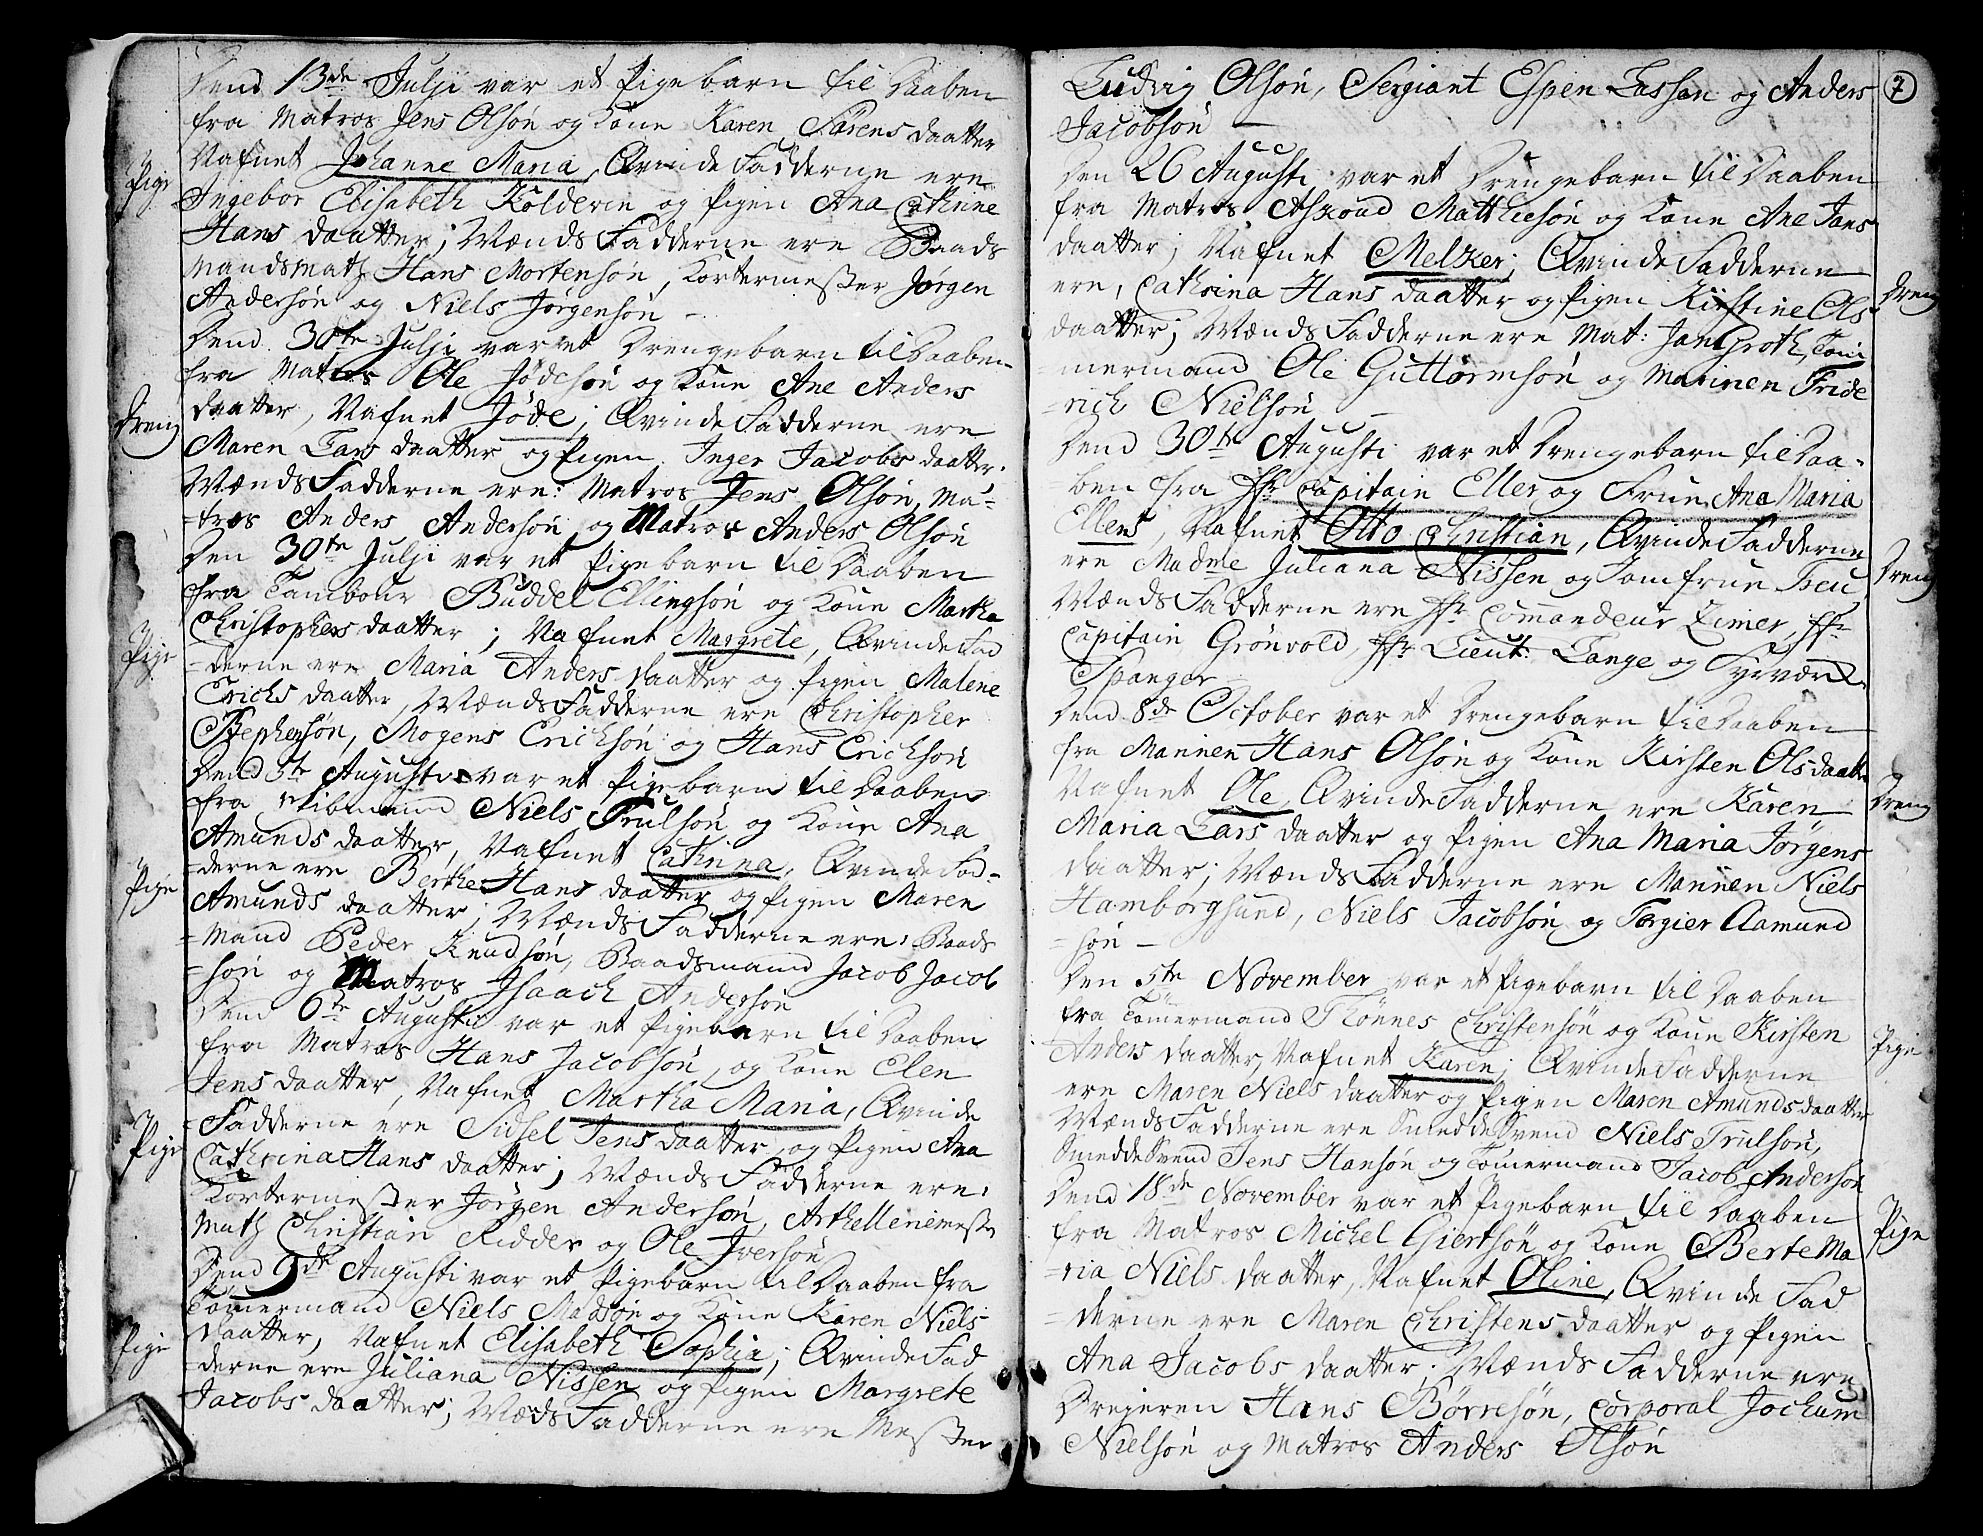 Dend 13de Julji var et Pigebarn til Daaben
fra Matros Jens Olsøn og Kone Karen Sørens daatter
Pige
Nafnet Johanne Maria, Qvinde Fadderne ere
Ingebor Elisabeth Kolderin og Pigen Ana Cathrine
Hans daatter; Mænds Fadderne ere Baads
mandsmath Hans Mortensøn, Kortermester Jørgen
Andersøn og Niels Jørgensøn –
Dend 30te Julji var et Drengebarn til Daaben
fra Matros Ole Jødesøn og Kone Ane Anders
Dreng
daatter, Nafnet Jøde; Qvinde Fadderne ere
Maren Lars daatter og Pigen Inger Jacobs daatter.
Mænds Fadderne ere: Matros Jens Olsøn, Ma-
-tros Anders Andersøn og Matros Anders Olsøn
Den 30te Julji var et Pigebarn til Daaben
fra Tambour Buddel Ellingsøn og Kone Martha
Pige
Christophers daatter; Nafnet Margrete, Qvinde Fad
-derne ere Maria Anders daatter og Pigen Malene
Erichs daatter, Mænds Fadderne ere Christopher
Stephensøn, Mogens Ericksøn og Hans Ericksøn
Dend 5te Augusti var et Pigebarn til Daaben
fra Niels Trulsøn og Kone Ana
Amunds daatter, Nafnet Cathrina, Qvinde Fad-
Pige
-derne ere Berthe Hans daatter og Pigen Maren
Amunds daatter; Mænds Fadderne ere: Baads
-mand Peder Knudsøn, Baadsmand Jacob Jacob
-søn og Matros Isaach Andersøn
Dend 6te Augusti var et Pigebarn til Daaben
fra Matros Hans Jacobsøn, og Kone Elen
Jens daatter, Nafnet Martha Maria, Qvinde
Pige
-Fadderne ere Sidsel Jens daatter og Pigen Ana
Cathrina Hans daatter; Mænds Fadderne ere:
Kortermester Jørgen Andersøn, Arkelleriemest
Math Christian Ridder og Ole Iversøn
Dend 9de Augusti var et Pigebarn til Daaben fra
Tømermand Niels Madsøn og Kone Karen Niels
Pige
daatter, Nafnet Elisabeth Sophia; Qvinde Fad
-derne ere Juliana Nissen og Pigen Margrete
Jacobs daatter; Mæds Fadderne ere Mester
7
Ludvig Olsøn, Sergiant Espen Lassen og Anders
Jacobsøn –
Den 26 Augusti var et Drengebarn til Daaben
fra Matros Asgoud Mathiesøn og Kone Ane Jans
daatter; Nafnet Melker; Qvinde Fadderne
Dreng
ere, Cathrina Hans daatter og Pigen Kirstine Ols
daatter; Mænds Fadderne ere Mat: Jan Groth, Tøm
-mermand Ole Guttormsøn og Marinen Fride
-rich Nielsøn –
Dend 30te Augusti var et Drengebarn til Daa-
-ben fra Hr Capitain Eller og Frue Ana Maria
Ellers, Nafnet Otto Christian, Qvinde Fadderne
Dreng
ere Madme Juliana Nissen og Jomfrue Treu,
Mænds Fadderne ere Hr Commandeur Zimer, Hr
Capitain Grønvold, Hr Lieut: Lange og Fyrværk
Spanger –
Dend 8de October var et Drengebarn til Daaben
fra Marinen Hans Olsøn og Kone Kirsten Ols daatt
Dreng
Nafnet Ole, Qvinde Fadderne ere Karen
Maria Lars daatter og Pigen Ana Maria Jørgens
daatter; Mænds Fadderne ere Marinen Niels
Hamborgsund, Niels Jacobsøn og Torgier Aamund
-søn –
Den 5te November var et Pigebarn til Daaben
fra Tømermand Tønnes Christensøn og Kone Kirsten
Pige
Anders daatter, Nafnet Karen; Qvinde Fadderne
ere Maren Niels daatter og Pigen Maren Amunds daatter
Mænds Fadderne ere SmeddeSvend Niels Trulsøn,
SmeddeSvend Jens Hansøn og Tømermand Jacob Andersøn
Dend 18de November var et Pigebarn til Daaben
Pige
fra Matros Michel Giertsøn og Kone Berte Ma
-ria Niels daatter, Nafnet Oline, Qvinde Fad
-derne ere Maren Christens daatter og Pigen
Ana Jacobs daatter; Mænds Fadderne ere
Drejeren Hans Børresøn, Corporal Jochum
Nielsøn og Matros Anders Olsøn